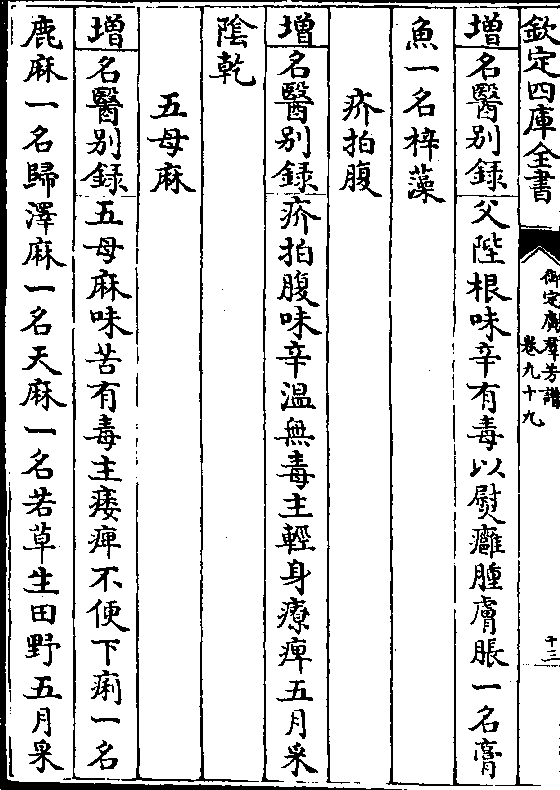 欽定四庫全書
御定廣羣芳譜
卷九十九
十三
增名醫别録父陛根味辛有毒以熨癰腫膚脹一名膏
魚一名梓藻
疥拍腹
增名醫别録疥拍腹味辛温無毒主輕身療痺五月采
陰乾
五母麻
增名醫别録五母麻味苦有毒主痿痺不便下痢一名
鹿麻一名歸澤麻一名天麻一名若草生田野五月采